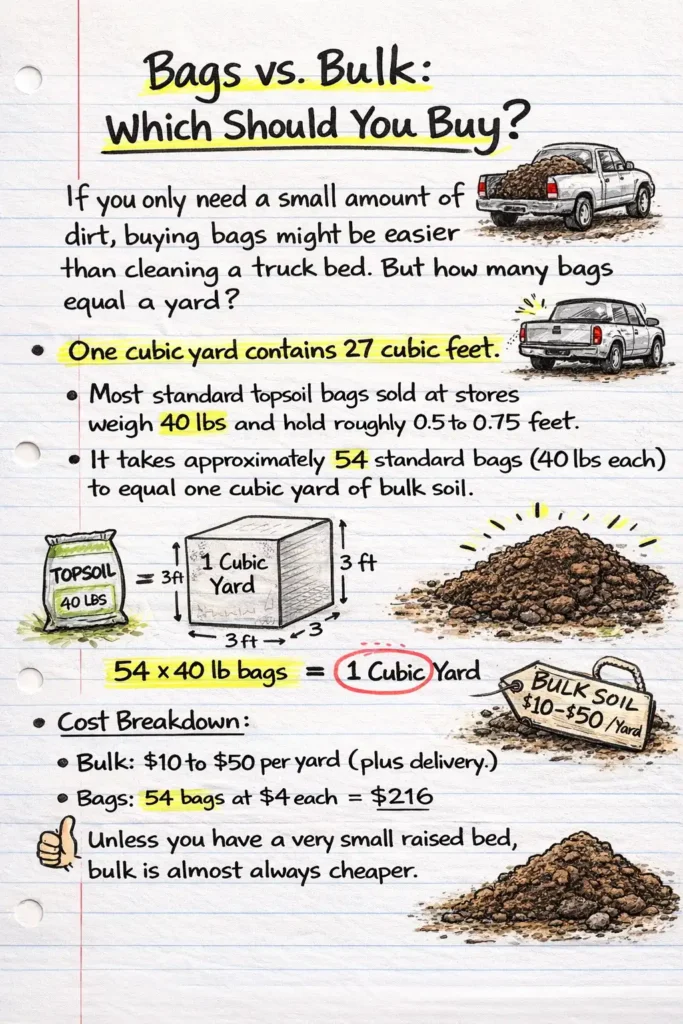 Bags vs. Bulk:
Which Should You Buy?
If you only need a small amount of
dirt, buying bags might be easier
than cleaning a truck bed. But how many bags
equal a yard?
• One cubic yard contains 27 cubic feet.
• Most standard topsoil bags sold at stores
weigh 40 lbs and hold roughly 0.5 to 0.75 feet.
• It takes approximately 54 standard bags (40 lbs each)
to equal one cubic yard of bulk soil.
TOPSOIL
40 LBS
=
3ft
1 Cubic
Yard
3 ft
3ft
3
54 x 40 lb bags = 1 Cubic Yard
BULK SOIL
$10-$50 /Yard
• Cost Breakdown:
• Bulk: $10 to $50 per yard (plus delivery.)
• Bags: 54 bags at $4 each = $216
Unless you have a very small raised bed,
bulk is almost always cheaper.